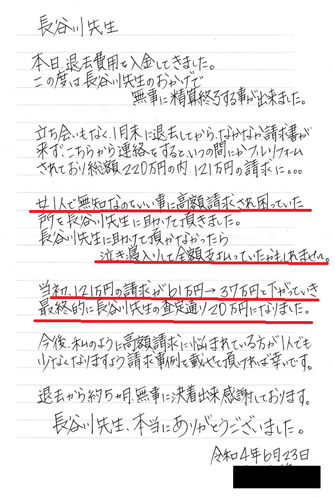 長谷川先生
本日、退去費用を入金してきました。
この度は、長谷川先生のおかげで
無事に精算終了する事が出来ました。
立ち会いもなく、1月末に退去してから、なかなか請求書が
来ず、こちらから連絡をすると、いつの間にかフルリフォーム
されており総額220万円の内、121万円の請求に…
女1人で無知なのをいい事に高額請求され困っていた
所を長谷川先生に助けて頂きました。
長谷川先生に助けて頂かなかったら
泣き寝入りして全額支払っていたかもしれません。
当初、121万円の請求が61万円→37万円と下がっていき
最終的に長谷川先生の査定通り20万円になりました。
今後、私のように高額請求に悩まれている方が1人でも
少なくなりますよう請求事例と載せて頂ければ幸いです。
退去から約5ヵ月、無事に決着出来感謝しております。
長谷川先生、本当にありがとうございました。
令和4年6月23日